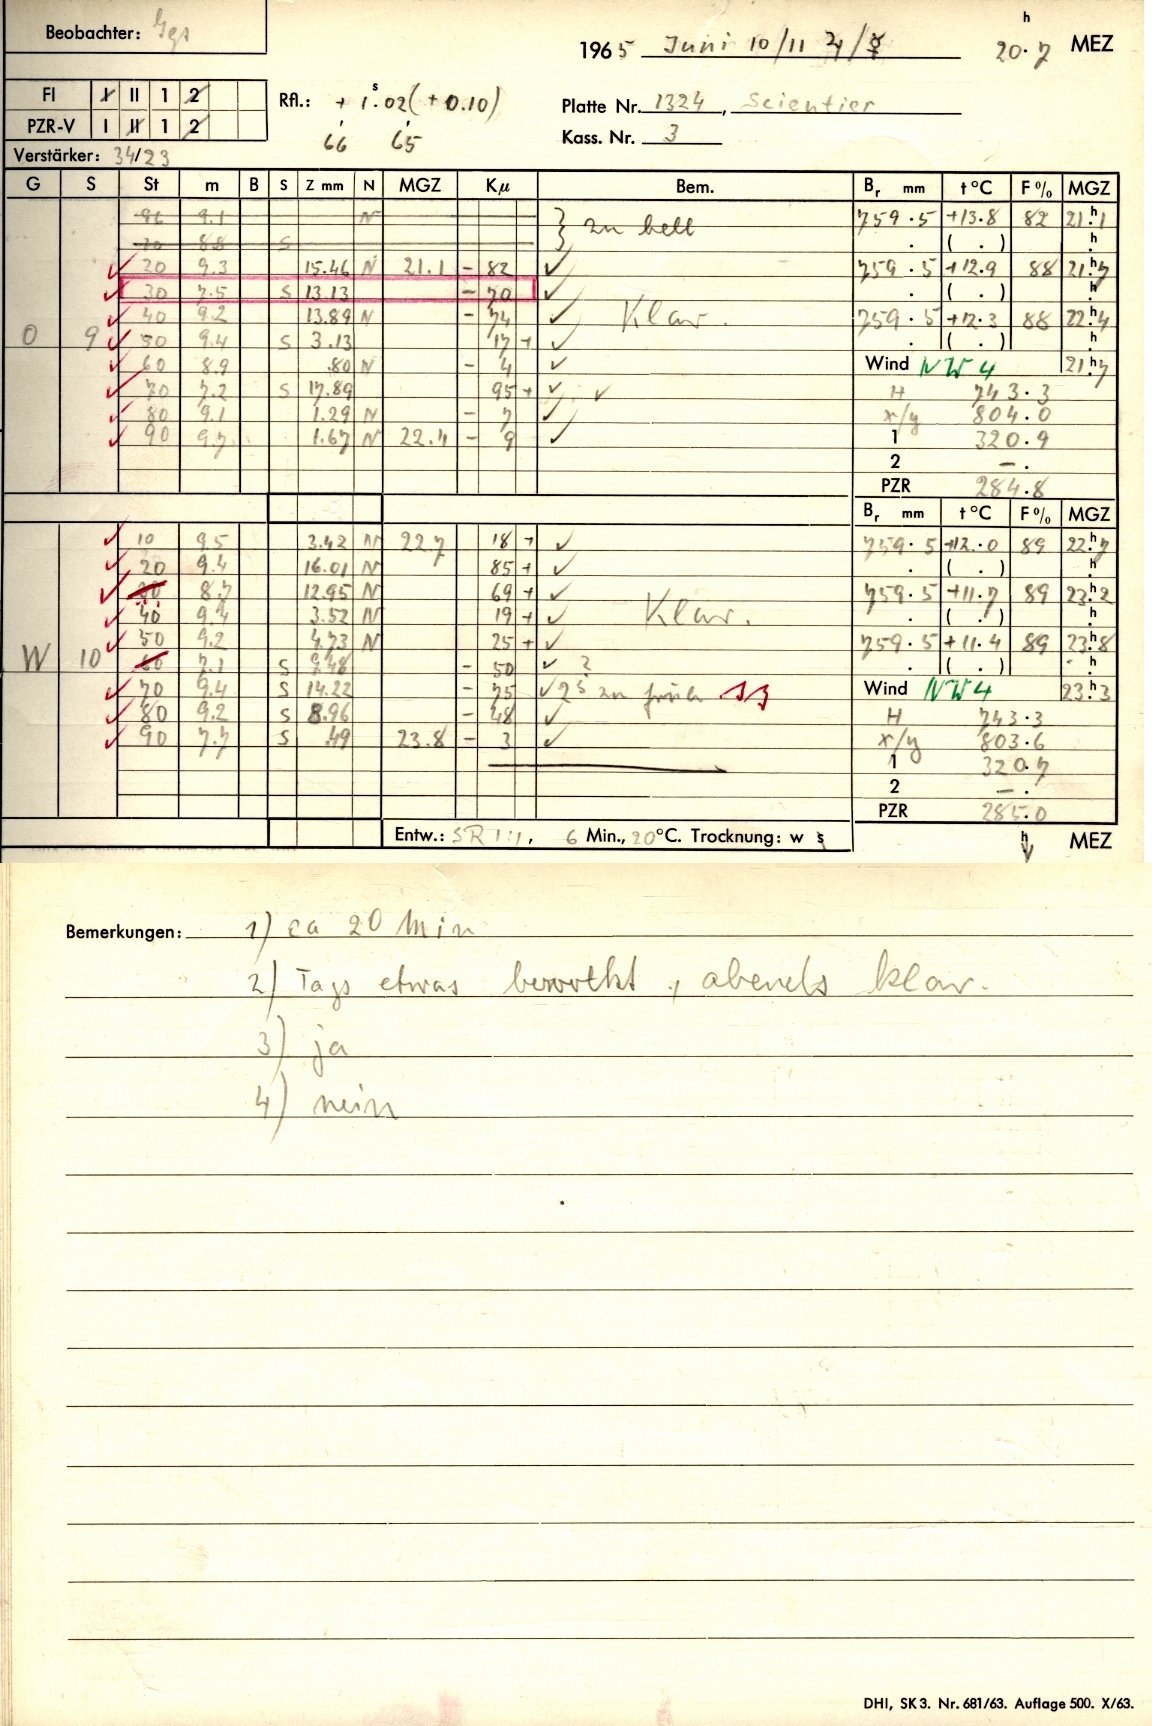 Beobachter: Ggs
1965 Juni 10/11 ♃/♀ 20h.7 MEZ
FI I II 1 2
PZR-V I II 1 2
Rfl.: + 1s.02 (+0.10)
66 65
Platte Nr. 1324, Scientier
Kass. Nr. 3
Verstärker: 34/23
G S St m B S Z mm N MGZ Kμ Bem. Br mm t °C F % MGZ
96 9.1 N } zu hell 759.5 +13.8 82 21h.1
70 8.8 S . ( . ) h.
20 9.3 15.46 N 21.1 - 82 ✓ 759.5 +12.9 88 21h.7
30 7.5 S 13.13 - 70 ✓ . ( . ) h.
40 9.2 13.89 N - 74 ✓ Klar. 759.5 +12.3 88 22h.4
O 9 50 9.4 S 3.13 17 + ✓ . ( . ) h.
60 8.9 .80 N - 4 ✓ Wind NW 4 21h.7
70 7.2 S 17.89 95 + ✓ ✓ H 743.3
80 9.1 1.29 N - 7 ✓ x/y 804.0
90 9.7 1.67 N 22.4 - 9 ✓ 1 320.9
2 - .
PZR 284.8
Br mm t °C F % MGZ
10 9.5 3.42 N 22.7 18 + ✓ 759.5 +12.0 89 22h.7
20 9.4 16.01 N 85 + ✓ . ( . ) h.
30 8.7 12.95 N 69 + ✓ 759.5 +11.7 89 23h.2
40 9.4 3.52 N 19 + ✓ Klar. . ( . ) h.
50 9.2 4.73 N 25 + ✓ 759.5 +11.4 89 23h.8
W 10 60 7.1 S 9.48 - 50 ✓ ? . ( . ) h.
70 9.4 S 14.22 - 75 ✓ 2s zu früh Wind NW 4 23h.3
80 9.2 S 8.96 - 48 ✓ H 743.3
90 7.7 S .49 23.8 - 3 ✓ x/y 803.6
1 320.7
2 - .
PZR 285.0
Entw.: SR 1:1, 6 Min., 20°C. Trocknung: w s h MEZ
Bemerkungen: 1) ca 20 Min
2) Tags etwas bewölkt, abends klar.
3) ja
4) nein
DHI, SK 3. Nr. 681/63. Auflage 500. X/63.